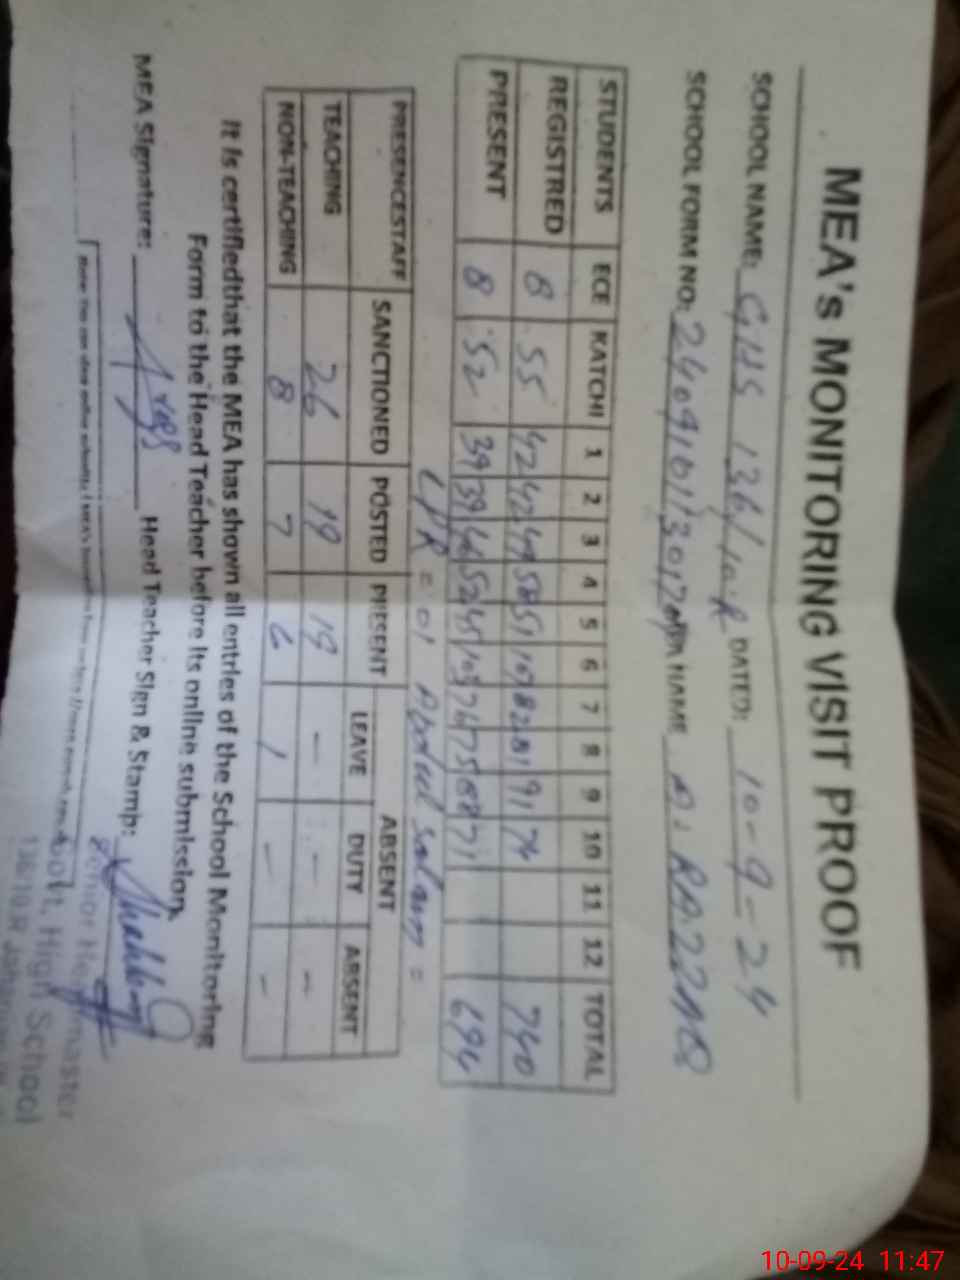 MEA's MONITORING VISIT PROOF
SCHOOL NAME: GHS 136/10.R DATED: 10-9-24
SCHOOL FORM NO: NAME A. RAZZAQ
STUDENTS ECE KATCHI 1 2 3 4 5 6 7 8 9 10 11 12 TOTAL
REGISTRED 8 55 42 42 49 58 51 107 82 81 91 74 740
PRESENT 8 52 39 39 46 52 45 103 74 75 68 71 694
LPR = 01 Abdul Salam =
PRESENCESTAFF SANCTIONED POSTED PRESENT ABSENT
LEAVE DUTY ABSENT
TEACHING 26 19 19 - - -
NON-TEACHING 8 7 6 1 - -
It is certifiedthat the MEA has shown all entries of the School Monitoring
Form to the Head Teacher before its online submission.
MEA Signature: Head Teacher Sign & Stamp:
Senior Headmaster
Govt. High School
136/10.R
10-09-24 11:47